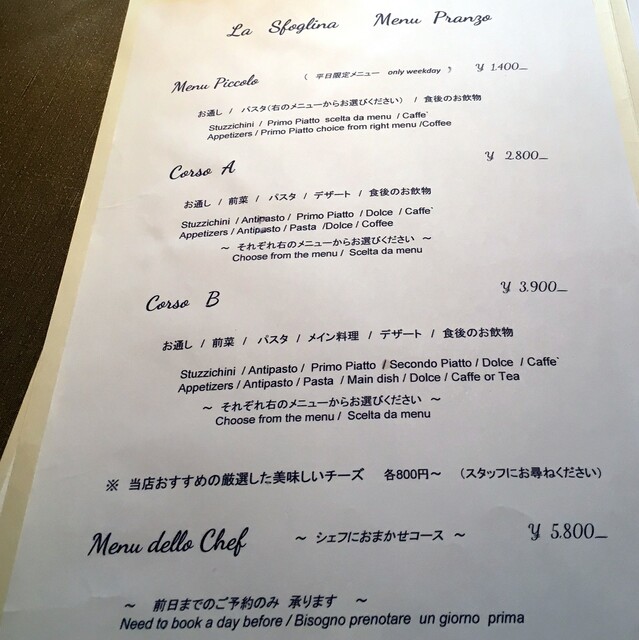 La Sfoglina Menu Pranzo
Menu Piccolo ( 平日限定メニュー only weekday ) ¥ 1.400_
お通し / パスタ(右のメニューからお選びください) / 食後のお飲物
Stuzzichini / Primo Piatto scelta da menu / Caffe`
Appetizers / Primo Piatto choice from right menu /Coffee
Corso A ¥ 2.800_
お通し / 前菜 / パスタ / デザート / 食後のお飲物
Stuzzichini / Antipasto / Primo Piatto / Dolce / Caffe`
Appetizers / Antipasto / Pasta /Dolce / Coffee
～ それぞれ右のメニューからお選びください ～
Choose from the menu / Scelta da menu
Corso B ¥ 3.900_
お通し / 前菜 / パスタ / メイン料理 / デザート / 食後のお飲物
Stuzzichini / Antipasto / Primo Piatto / Secondo Piatto / Dolce / Caffe`
Appetizers / Antipasto / Pasta / Main dish / Dolce / Caffe or Tea
～ それぞれ右のメニューからお選びください ～
Choose from the menu / Scelta da menu
※ 当店おすすめの厳選した美味しいチーズ 各800円～ (スタッフにお尋ねください)
Menu dello Chef ～ シェフにおまかせコース ～ ¥ 5.800_
～ 前日までのご予約のみ 承ります ～
Need to book a day before / Bisogno prenotare un giorno prima